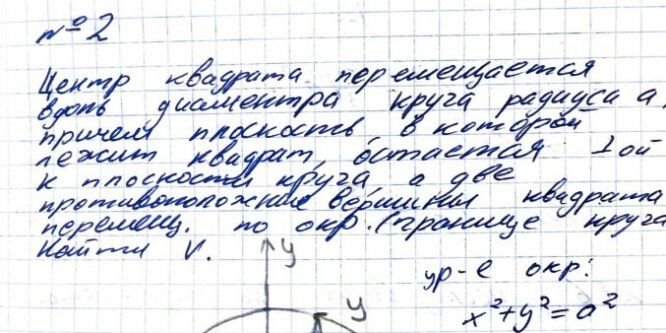 №2
Центр квадрата перемещается
вдоль диаментра круга радиуса a,
причем плоскость, в которой
лежит квадрат, остается ⊥ой
к плоскости круга, а две
противоположные вершины квадрата
перемещ. по окр. (границе круга
Найти V.
y
ур-е окр:
y
x²+y²=a²